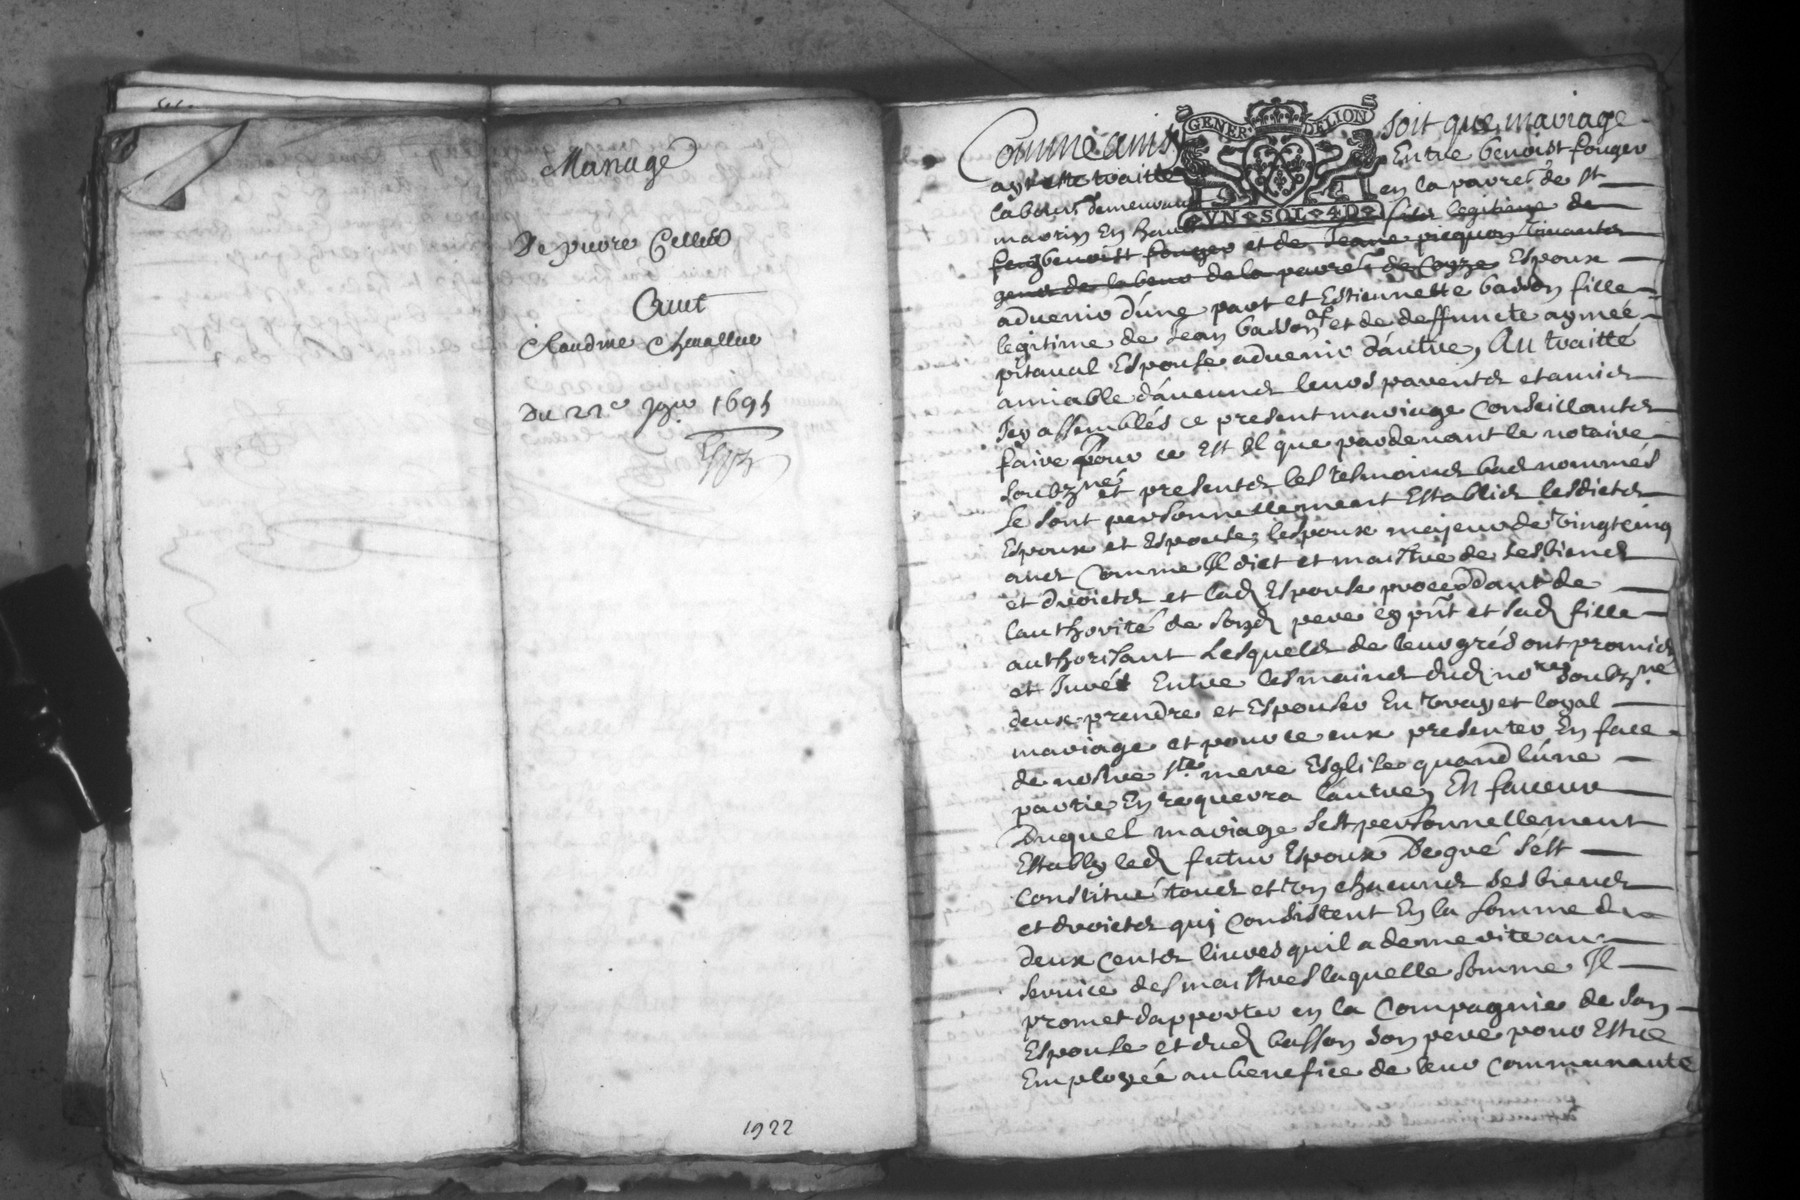 Mariage
De pierre Cellier
Avec
Claudine Chevallier
du 22e jer 1695
1922
GENER. DE LION
VN SOL 4D
Comme ainsy soit que mariage
aye esté traitté Entre benoist fouger
labour demeurant en la parroe de st
maorin En haut filz legitime de
feu benoist fouger et de Jeane picquon vivantes
gens de labeur de la parroe de Coyze Espoux
advenir d'une part et Estiennette basson fille
legitime de Jean basson et de deffuncte aymeé
pitaval Espouse advenir d'autre, Au traitté
amiable d'aucuns leurs parents et amis
Jcy assemblés ce present mariage Conseillants
faire pour ce est Il que pardevant le notaire
soubzné et presents les tesmoins bas nommés
se sont personnellement Establis lesdicts
Espoux et Espouse, lespoux majeur de vingtcinq
ans Comme Il dict et maistre de ses biens
et droicts et lad Espouse proceddant de
l'authorité de sond pere cy pnt et sad fille
authorisant Lesquels de leur gré ont promis
et Juré Entre les mains dud nore soubzné
deux prendre et Espouser En vray et loyal
mariage et pour ce eux presenter En face
de nostre ste mere Esglise quand l'une
partie En requerra l'autre, En faveur
Duquel mariage sest personnellement
Estably led futur Espoux De gré s'est
constitué tous et un chacuns ses biens
et droicts quj consistent En la somme de
deux cents livres quil a de merite au
service des maistres laquelle somme Il
promet d'apporter en la Compagnie de son
Espouse et dud basson son pere pour Estre
Employée au benefice de leur communauté